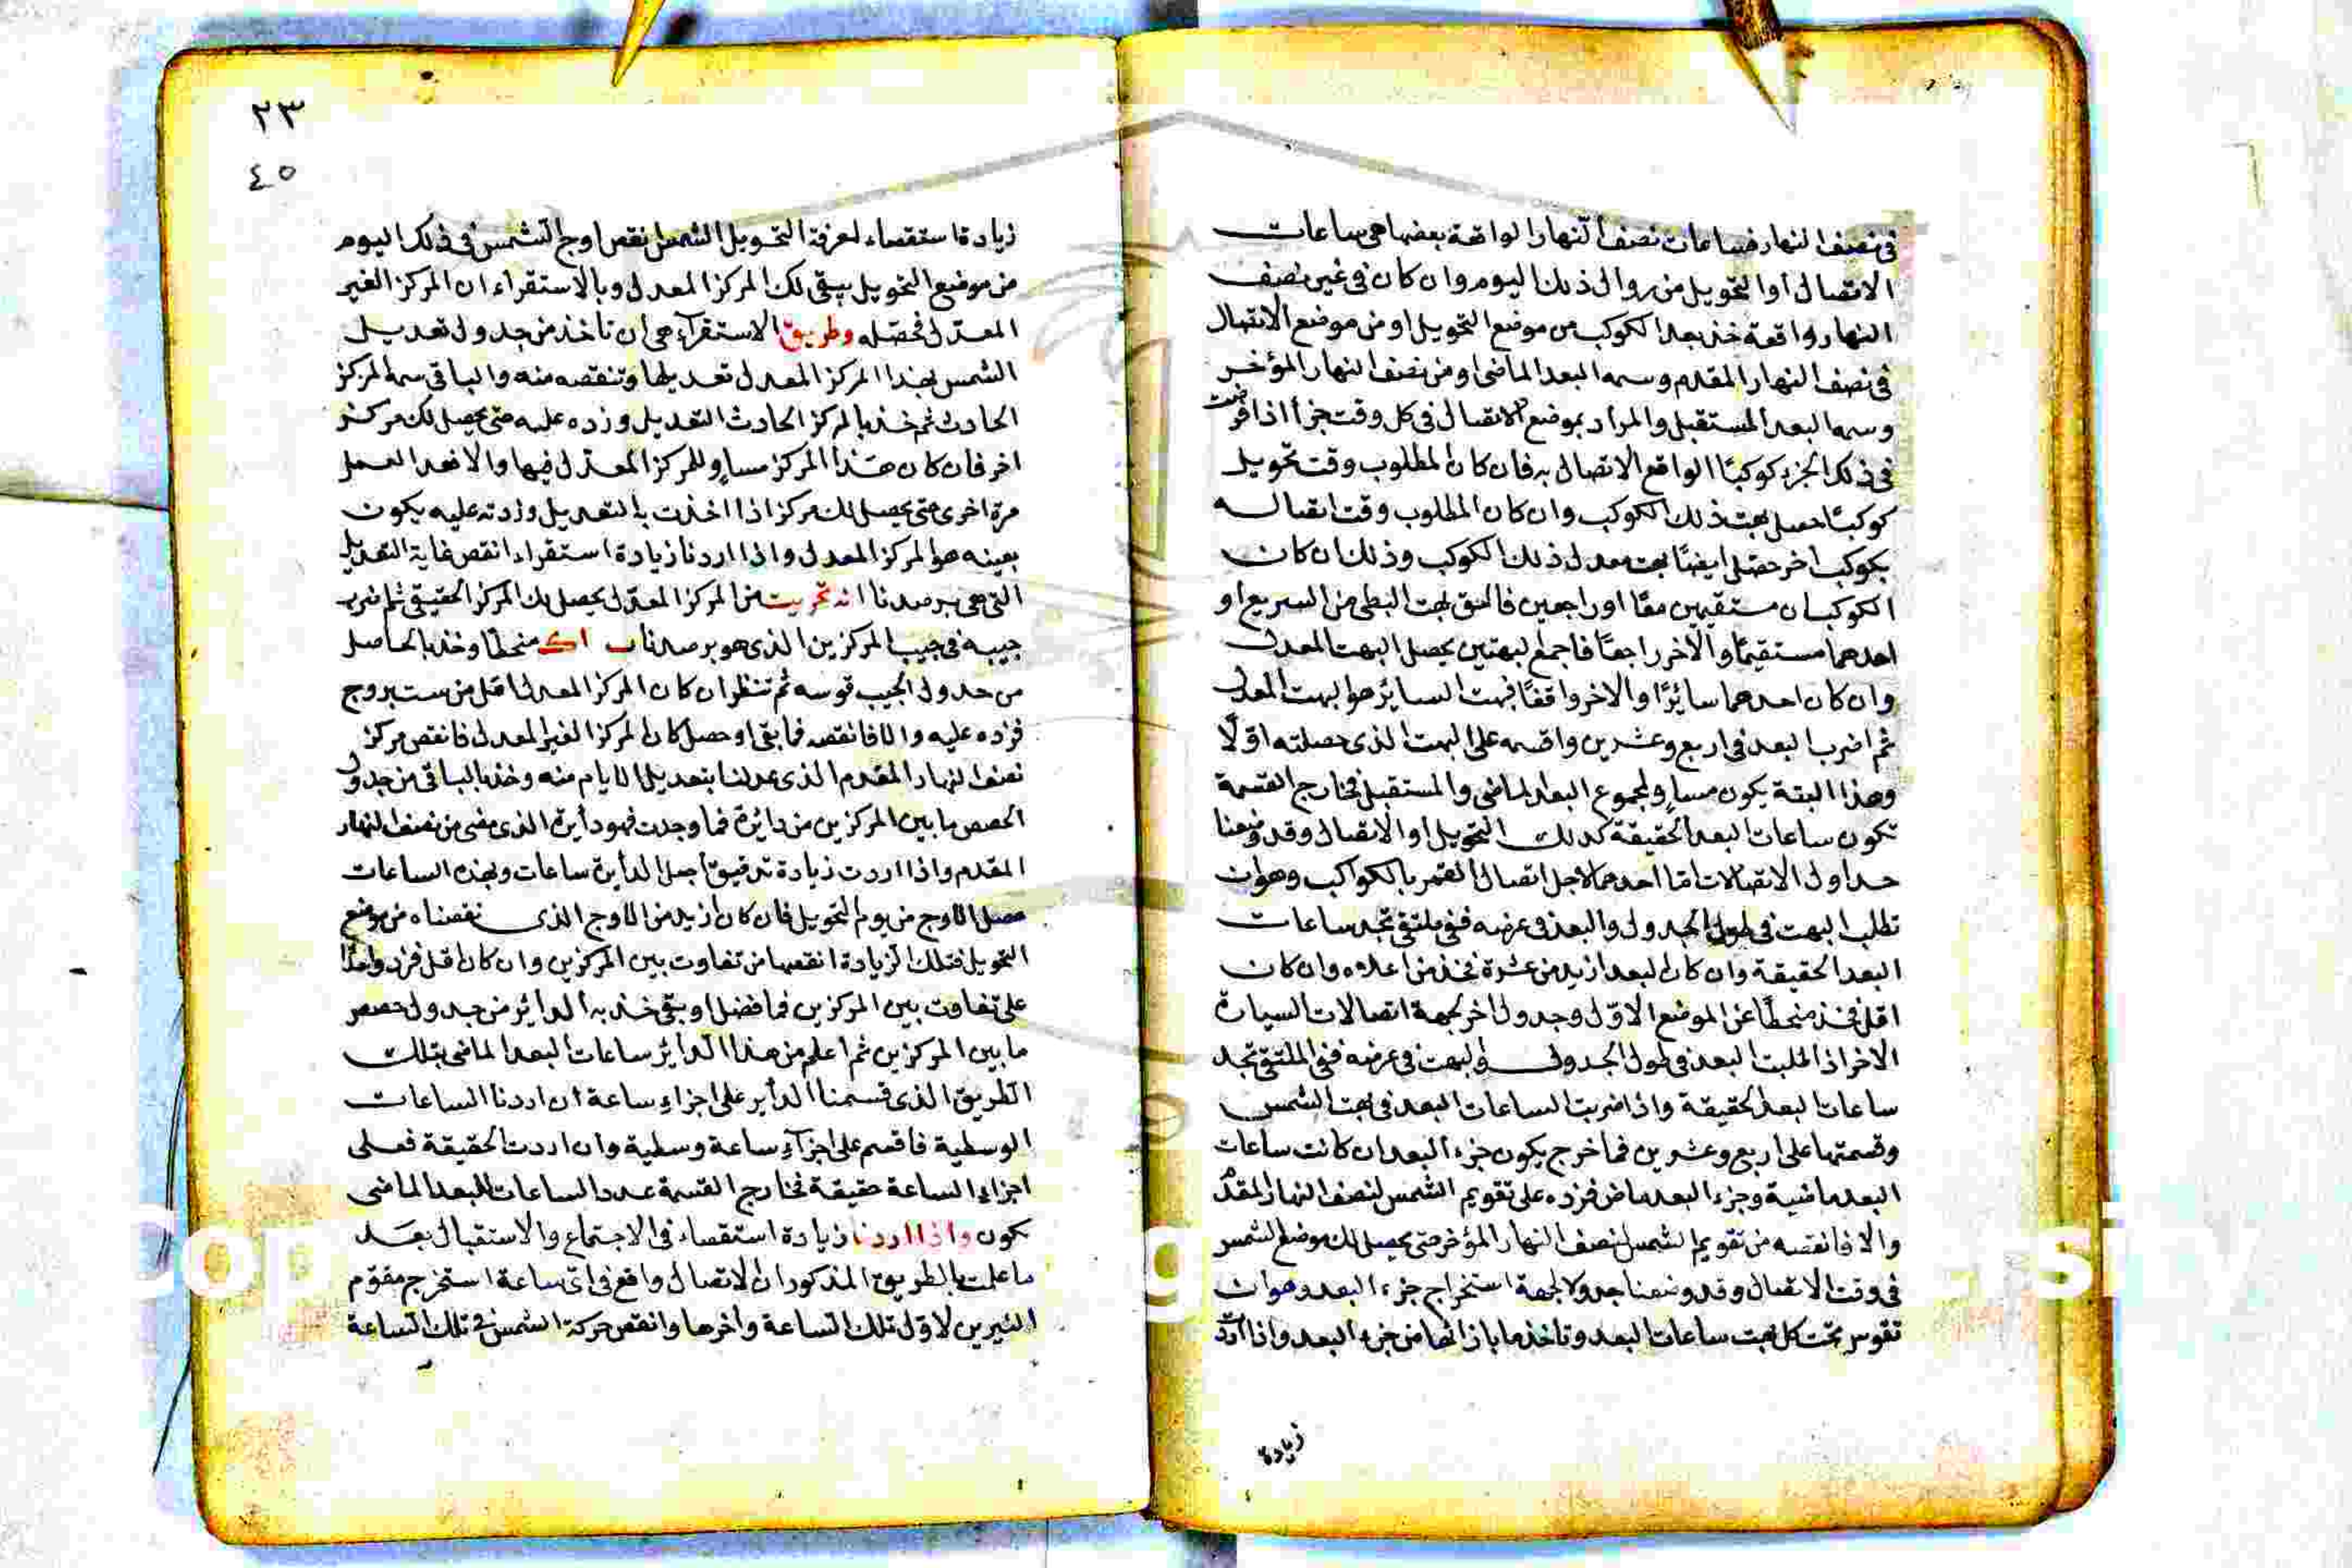 في نصف النهار فساعات نصف النهار الواقعة بعضها هي ساعات
الاتصال أو التحويل من زوال ذلك اليوم وان كان في غير نصف
النهار واقعة خذ بعد الكوكب من موضع التحويل او من موضع الاتصال
في نصف النهار المقدم وسمه البعد الماضي او من نصف النهار المؤخر
وسمه البعد المستقبل والمراد بموضع الاتصال في كل وقت جزأ اذا فرضت
في ذلك الجزء كوكبًا الواقع الاتصال به فان كان المطلوب وقت تحويل
كوكبًا حصل بهت ذلك الكوكب وان كان المطلوب وقت اتصاله
بكوكب اخر حصل ايضًا بهت معدل ذلك الكوكب وذلك ان كان
الكوكبان مستقيمين معًا او راجعين فالق بهت البطى من السريع او
احدهما مستقيمًا والآخر راجعًا فاجمع البهتين يحصل البهت المعدل
وان كان احدهما سائرًا والاخر واقفًا فبهت السائر هو البهت المعدل
ثم اضرب البعد في اربع وعشرين واقسمه على البهت الذى حصلته اولًا
وهذا البتة يكون مساوٍ لمجموع البعد الماضى والمستقبل فخارج القسمة
تكون ساعات البعد الحقيقة كذلك التحويل او الاتصال وقد وضعنا
جداول الاتصالات اما احدهما لاجل اتصال القمر بالكواكب وهو ان
تطلب البهت في طول الجدول والبعد في عرضه ففي ملتقى تجد ساعات
البعد الحقيقة وان كان البعد ازيد من عشرة فخذ من اعلاه وان كان
اقل فخذ منحطًا عن الموضع الاول وجدول اخر لجهة اتصالات السيارة
الاخر اذا طلبت البعد في طول الجدول والبهت في عرضه ففي الملتقى تجد
ساعات البعد الحقيقة واذا ضربت الساعات البعد في بهت الشمس
وقسمتها على اربع وعشرين فما خرج يكون جزء البعد ان كانت ساعات
البعد ماضية وجزء البعد ماض فزده على تقويم الشمس لنصف النهار المقدم
والا فانقصه من تقويم الشمس لنصف النهار المؤخر حتى يحصل لك موضع الشمس
في وقت الاتصال وقد وضعنا جدولا لجهة استخراج جزء البعد وهو ان
تقوس تحت كل بهت ساعات البعد وتاخذ ما بازائها من جزء البعد واذا اردت
زيادة
٢٣
٤٥
زيادة استقصاء لعرفة التحويل الشمس نقص اوج الشمس في ذلك اليوم
من موضع التحويل يبقى لك المركز المعدل وبالاستقراء ان المركز الغير
المعدل فحصله وطريق الاستقراء هي ان تأخذ من جدول تعديل
الشمس بهذا المركز المعدل تعديلها وتنقصه منه والباقي سمه المركز
الحادث ثم خذ بالمركز الحادث التعديل وزده عليه حتى يحصل لك مركز
اخر فان كان هذا المركز مساوٍ للمركز المعدل فبها والا فعد العمل
مرة اخرى حتى يحصل لك مركز اذا اخذت بالتعديل وزدته عليه يكون
بعينه هو المركز المعدل واذا اردنا زيادة استقراء انقص غاية التعديل
التي هي برصدنا من المركز المعدل يحصل لك المركز الحقيقي ثم اضرب
جيبه في جيب المركزين الذى هو برصدنا منحطًا وخذ بالحاصل
من جدول الجيب قوسه ثم تنظر ان كان المركز المعدل اقل من ست بروج
فزده عليه والا فانقصه فما بقى او حصل كان المركز الغير المعدل فانقص مركز
نصف النهار المقدم الذى عدلنا بتعديل الايام منه وخذ بالباقى من جدول
الحصص ما بين المركزين من دائرة فما وجدت فهو دايرة الذى مضى من نصف النهار
المقدم واذا اردت زيادة تدقيق اجعل الدايرة ساعات وبهذه الساعات
حصل الاوج من يوم التحويل فان كان ازيد من الاوج الذى نقصناه من موضع
التحويل فتلك الزيادة انقصها من تفاوت بين المركزين وان كان اقل فزد واحدًا
على تفاوت بين المركزين فما فضل او بقى خذ به الدائر من جدول حصص
ما بين المركزين ثم اعلم من هذا الدائر ساعات البعد الماضى بتلك
الطريق الذى قسمنا الداير على اجزاء ساعة ان اردنا الساعات
الوسطية فاقسم على اجزآء ساعة وسطية وان اردت الحقيقة فعلى
اجزاء الساعة حقيقة فخارج القسمة عدد الساعات للبعد الماضى
كون واذا اردنا زيادة استقصاء في الاجتماع والاستقبال بعد
ما علمت بالطريق المذكور ان الاتصال واقع في اى ساعة استخرج مقوم
النيرين لاول تلك الساعة وآخرها وانقص حركة الشمس في تلك الساعة